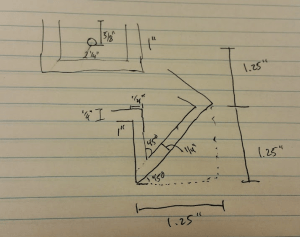 5/8"
1"
2 1/4"
1.25"
1/4"
1/4"
1"
45°
1/4"
1.25"
45°
1.25"